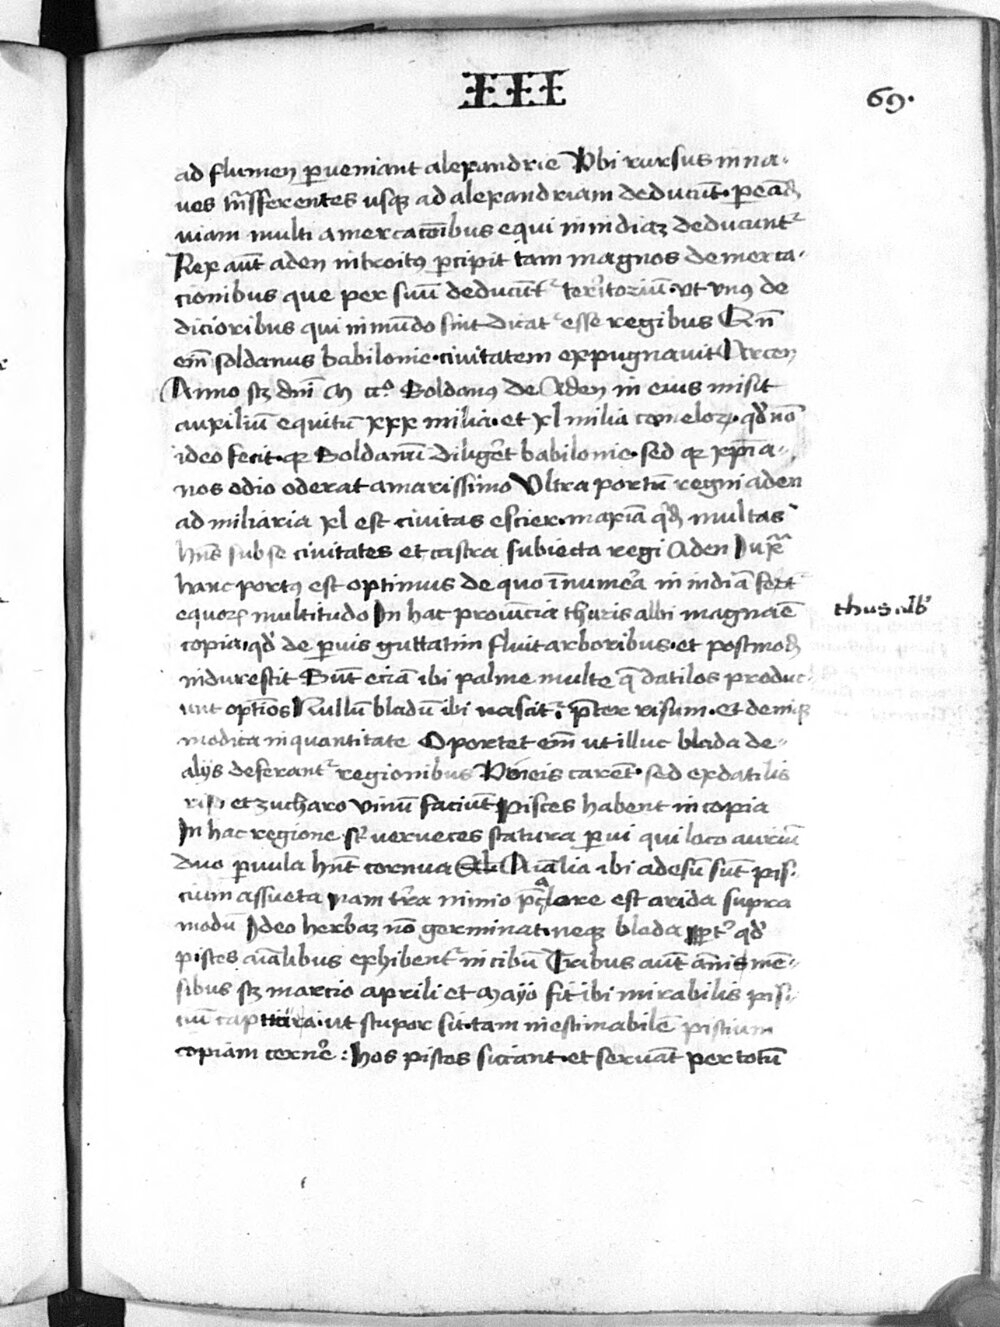 IIII
69.
ad flumen p̲veniant alexandrie Vbi rursus in na-
ues tr̄sfferentes usq̨ ad alexandriam deducūt. per eād̄
viam multi a mercatōibus equi in indiaꝫ deducunt᷑
Rex aūt aden introitꝰ p̲cipit tam magnos de merca-
cionibus que per suū deducūt᷑ ter̕itoriū. vt vnꝰ de
dicioribus qui in mūdo sint dicat᷑ esse regibus Qn̄
em̄ soldanus babilonie. civitatem expugnavit Accen
Anno sꝫ dn̄i M cc.º Soldanꝰ de Aden in eius misit
auxiliū equitū xxx milia. et xl milia cameloꝝ. qd̕ nō
ideo fecit. qꝛ Soldanū diliger̕t babilonie. sed qꝛ xp̄ia-
nos odio oderat amarissimo Vltra portū regni aden
ad miliaria xl est civitas escier. maxīa q̄d̄ multas
hn̄s sub se civitates et castra subiecta regi Aden Iux̄
hanc portꝰ est optimus de quo īnumer̕a in indiā fert᷑
equoꝝ multitudo In hac provincia thuris albi magna ē
thus alb̕
copia. qd̕ de p̲vis guttatim fluit arboribus. et postmod̄
indurescit Sūt eciā ibi palme multe q̄ datilos produc-
unt optīos Nullū bladū ibi nascit᷑ p̄ter risum. et deniq̨
modica in quantitate Oportet em̄ ut illuc blada de-
alijs deferant᷑ regionibus Vineis carēt. sed ex datilis
risi et zucharo vinū faciūt Pisces habent in copia
In hac regione sūt verveces statura p̲vi qui loco auriū
duo p̲vula hn̄t cornua Aīalia ibi ad esū sūt pis-
cium assueta nam tr̕a nimio p̄ calore est arida supra
modū Ideo herbaꝫ nō germinat. neq̨ blada ppt̕ qd̕
pisces aīalibus exhibent᷑ in cibū Tribus aūt anni mē-
sibus sꝫ marcio aprili et Mayo fit ibi mirabilis pis-
ciū captura. ut stupor sit. tam inestimabilē piscium
copiam cerner̕e : hos pisces siccant. et servāt per totū